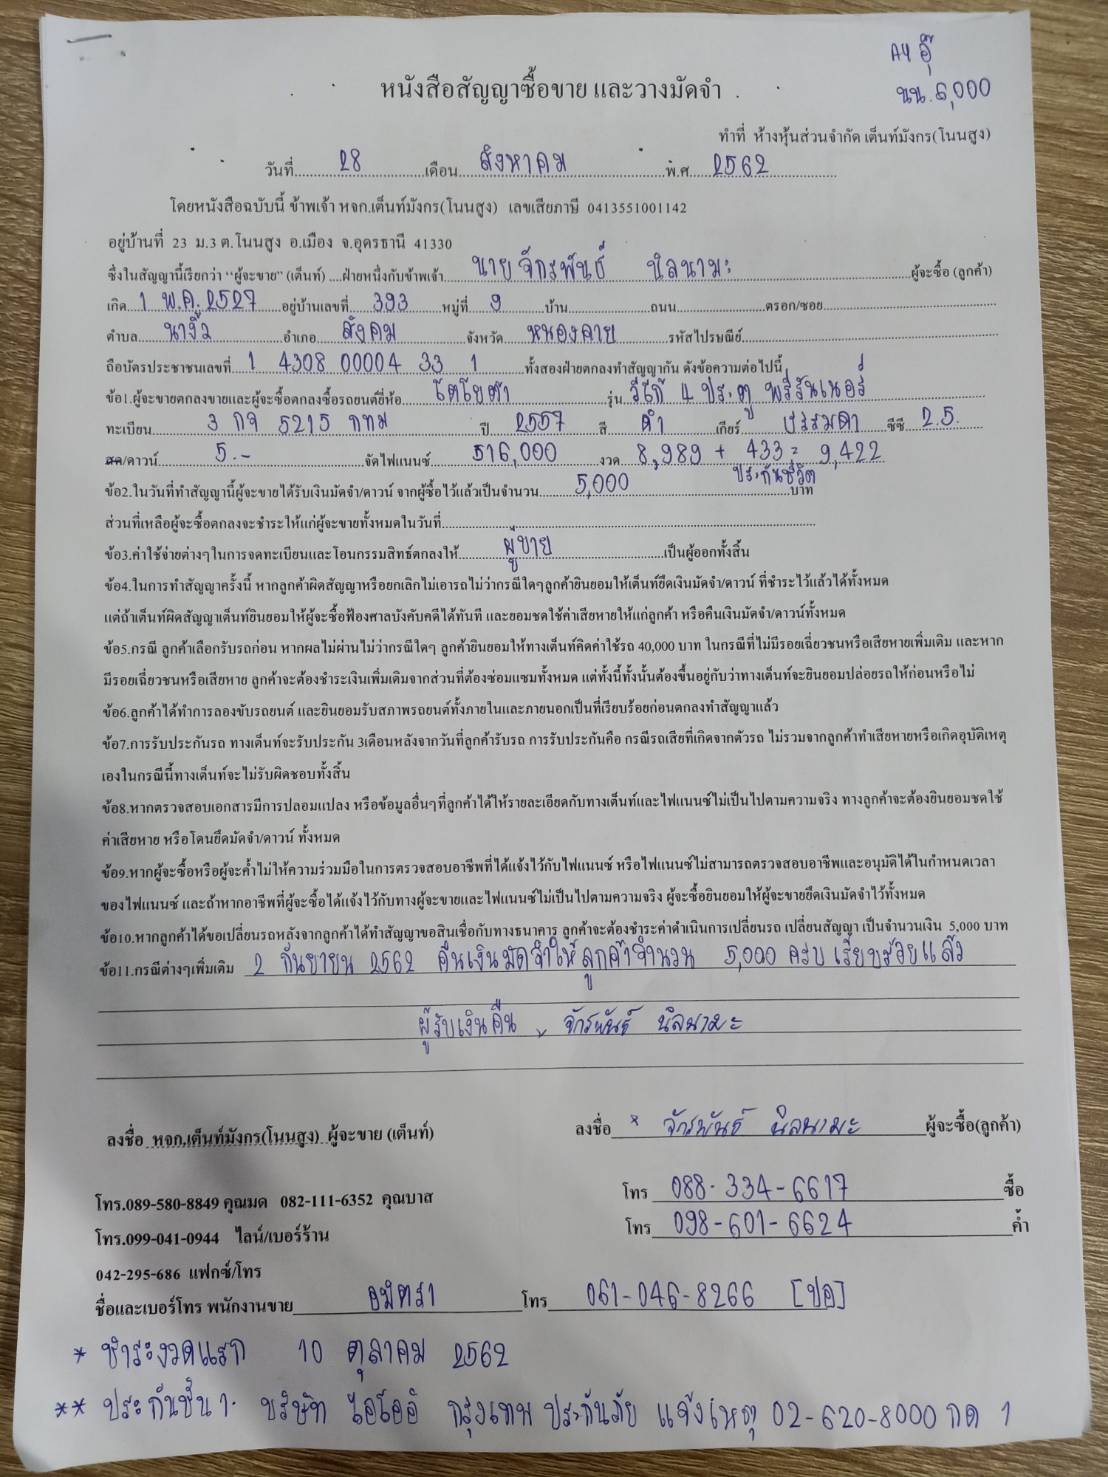 A4 อุ๊
นน.6,000
หนังสือสัญญาซื้อขาย และวางมัดจำ
ทำที่ ห้างหุ้นส่วนจำกัด เต็นท์มังกร(โนนสูง)
วันที่ 28 เดือน สิงหาคม พ.ศ. 2562
โดยหนังสือฉบับนี้ ข้าพเจ้า หจก.เต็นท์มังกร(โนนสูง) เลขเสียภาษี 0413551001142
อยู่บ้านที่ 23 ม.3 ต.โนนสูง อ.เมือง จ.อุดรธานี 41330
ซึ่งในสัญญานี้เรียกว่า "ผู้จะขาย" (เต็นท์) ....ฝ่ายหนึ่งกับข้าพเจ้า นาย จักรพันธ์ นิลนามะ ผู้จะซื้อ (ลูกค้า)
เกิด 1 พ.ค. 2527 อยู่บ้านเลขที่ 393 หมู่ที่ 9 บ้าน ถนน ตรอก/ซอย
ตำบล นางิ้ว อำเภอ สังคม จังหวัด หนองคาย รหัสไปรษณีย์
ถือบัตรประชาชนเลขที่ 1 4308 00004 33 1 ทั้งสองฝ่ายตกลงทำสัญญากัน ดังข้อความต่อไปนี้
ข้อ1.ผู้จะขายตกลงขายและผู้จะซื้อตกลงซื้อรถยนต์ยี่ห้อ โตโยต้า รุ่น วีโก้ 4 ประตู พรีรันเนอร์
ทะเบียน 3 กจ 5215 กทม ปี 2557 สี ดำ เกียร์ ธรรมดา ซีซี 2.5
สด/ดาวน์ 5.- จัดไฟแนนซ์ 516,000 งวด 8,989 + 433 = 9,422
ประกันชีวิต
ข้อ2.ในวันที่ทำสัญญานี้ผู้จะขายได้รับเงินมัดจำ/ดาวน์ จากผู้ซื้อไว้แล้วเป็นจำนวน 5,000 บาท
ส่วนที่เหลือผู้จะซื้อตกลงจะชำระให้แก่ผู้จะขายทั้งหมดในวันที่
ข้อ3.ค่าใช้จ่ายต่างๆในการจดทะเบียนและโอนกรรมสิทธ์ตกลงให้ ผู้ขาย เป็นผู้ออกทั้งสิ้น
ข้อ4.ในการทำสัญญาครั้งนี้ หากลูกค้าผิดสัญญาหรือยกเลิกไม่เอารถ ไม่ว่ากรณีใดๆลูกค้ายินยอมให้เต็นท์ยึดเงินมัดจำ/ดาวน์ ที่ชำระไว้แล้วได้ทั้งหมด
แต่ถ้าเต็นท์ผิดสัญญาเต็นท์ยินยอมให้ผู้จะซื้อฟ้องศาลบังคับคดีได้ทันที และยอมชดใช้ค่าเสียหายให้แก่ลูกค้า หรือคืนเงินมัดจำ/ดาวน์ทั้งหมด
ข้อ5.กรณี ลูกค้าเลือกรับรถก่อน หากผลไม่ผ่านไม่ว่ากรณีใดๆ ลูกค้ายินยอมให้ทางเต็นท์คิดค่าใช้รถ 40,000 บาท ในกรณีที่ไม่มีรอยเฉี่ยวชนหรือเสียหายเพิ่มเติม และหาก
มีรอยเฉี่ยวชนหรือเสียหาย ลูกค้าจะต้องชำระเงินเพิ่มเติมจากส่วนที่ต้องซ่อมแซมทั้งหมด แต่ทั้งนี้ทั้งนั้นต้องขึ้นอยู่กับว่าทางเต็นท์จะยินยอมปล่อยรถให้ก่อนหรือไม่
ข้อ6.ลูกค้าได้ทำการลองขับรถยนต์ และยินยอมรับสภาพรถยนต์ทั้งภายในและภายนอกเป็นที่เรียบร้อยก่อนตกลงทำสัญญาแล้ว
ข้อ7.การรับประกันรถ ทางเต็นท์จะรับประกัน 3เดือนหลังจากวันที่ลูกค้ารับรถ การรับประกันคือ กรณีรถเสียที่เกิดจากตัวรถ ไม่รวมจากลูกค้าทำเสียหายหรือเกิดอุบัติเหตุ
เองในกรณีนี้ทางเต็นท์จะไม่รับผิดชอบทั้งสิ้น
ข้อ8.หากตรวจสอบเอกสารมีการปลอมแปลง หรือข้อมูลอื่นๆที่ลูกค้าได้ให้รายละเอียดกับทางเต็นท์และไฟแนนซ์ไม่เป็นไปตามความจริง ทางลูกค้าจะต้องยินยอมชดใช้
ค่าเสียหาย หรือโดนยึดมัดจำ/ดาวน์ ทั้งหมด
ข้อ9.หากผู้จะซื้อหรือผู้จะค้ำไม่ให้ความร่วมมือในการตรวจสอบอาชีพที่ได้แจ้งไว้กับไฟแนนซ์ หรือไฟแนนซ์ไม่สามารถตรวจสอบอาชีพและอนุมัติได้ในกำหนดเวลา
ของไฟแนนซ์ และถ้าหากอาชีพที่ผู้จะซื้อได้แจ้งไว้กับทางผู้จะขายและไฟแนนซ์ไม่เป็นไปตามความจริง ผู้จะซื้อยินยอมให้ผู้จะขายยึดเงินมัดจำไว้ทั้งหมด
ข้อ10.หากลูกค้าได้ขอเปลี่ยนรถหลังจากลูกค้าได้ทำสัญญาขอสินเชื่อกับทางธนาคาร ลูกค้าจะต้องชำระค่าดำเนินการเปลี่ยนรถ เปลี่ยนสัญญา เป็นจำนวนเงิน 5,000 บาท
ข้อ11.กรณีต่างๆเพิ่มเติม 2 กันยายน 2562 คืนเงินมัดจำให้ลูกค้าจำนวน 5,000 ครบ เรียบร้อยแล้ว
ผู้รับเงินคืน x จักรพันธ์ นิลนามะ
ลงชื่อ หจก.เต็นท์มังกร(โนนสูง) ผู้จะขาย (เต็นท์)
ลงชื่อ * จักรพันธ์ นิลนามะ ผู้จะซื้อ(ลูกค้า)
โทร.089-580-8849 คุณมด 082-111-6352 คุณบาส
โทร 088-334-6617 ซื้อ
โทร.099-041-0944 ไลน์/เบอร์ร้าน
โทร 098-601-6624 ค้ำ
042-295-686 แฟกซ์/โทร
ชื่อและเบอร์โทร พนักงานขาย อมิตรา โทร 061-046-8266 [ปอ]
* ชำระงวดแรก 10 ตุลาคม 2562
** ประกันชั้น 1. บริษัท ไอโออิ กรุงเทพ ประกันภัย แจ้งเหตุ 02-620-8000 กด 1